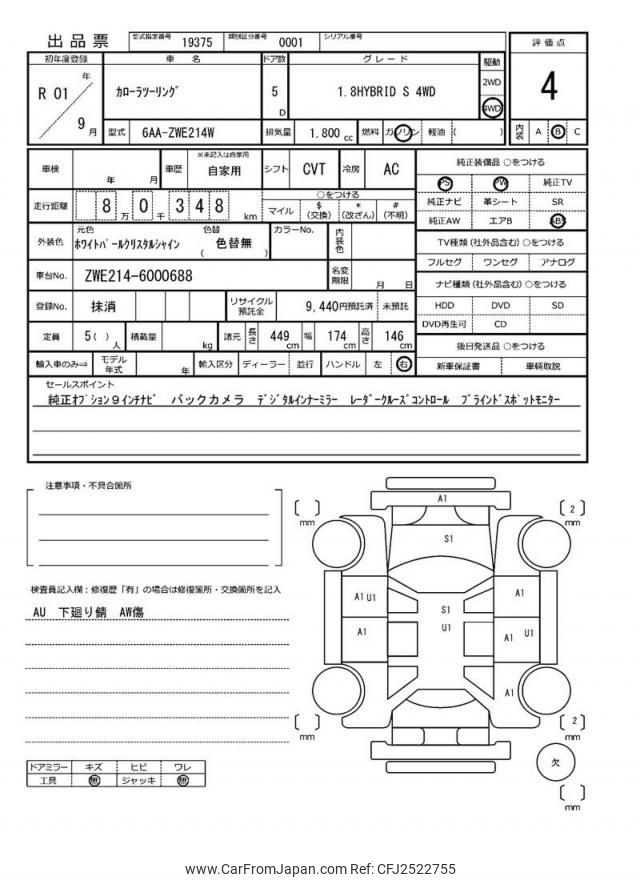 出品票 型式指定番号 19375 類別区分番号 0001 シリアル番号
初年度登録 車 名 ドア数 グレード 駆動 評価点
R 01 年 9 月 カローラツーリング 5 D 1.8HYBRID S 4WD 2WD 4WD 4
型式 6AA-ZWE214W 排気量 1.800 cc 燃料 ガソリン 軽油 ( ) 内装 A B C
車検 年 月 車歴 ※未記入は自家用 自家用 シフト CVT 冷房 AC
走行距離 8 万 0 千 3 4 8 km ○をつける マイル $ (交換) * (改ざん) # (不明)
外装色 元色 ホワイトパールクリスタルシャイン 色替 ( 色替無 ) カラーNo. 内装色
車台No. ZWE214-6000688 名変期限 月 日
登録No. 抹消 リサイクル預託金 9,440円預託済 未預託
定員 5 ( ) 人 積載量 kg 諸元 長さ 449 cm 幅 174 cm 高さ 146 cm
輸入車のみ⇒ モデル年式 年 輸入区分 ディーラー 並行 ハンドル 左 右
純正装備品 ○をつける
PS PW 純正TV
純正ナビ 革シート SR
純正AW エアB ABS
TV種類 (社外品含む) ○をつける
フルセグ ワンセグ アナログ
ナビ種類 (社外品含む) ○をつける
HDD DVD SD
DVD再生可 CD
後日発送品 ○をつける
新車保証書 車輌取説
セールスポイント
純正オプション9インチナビ バックカメラ デジタルインナーミラー レーダークルーズコントロール ブラインドスポットモニター
注意事項・不具合箇所
検査員記入欄：修復歴「有」の場合は修復箇所・交換箇所を記入
AU 下廻り錆 AW傷
ドアミラー キズ ヒビ ワレ
工具 無 ジャッキ 無
[ ] mm A1 [ 2 ] mm
S1
A1 U1 S1 A1
A1 U1 A1 U1
A1
[ ] mm [ 2 ] mm
欠
[ ] mm
www.CarFromJapan.com Ref: CFJ2522755